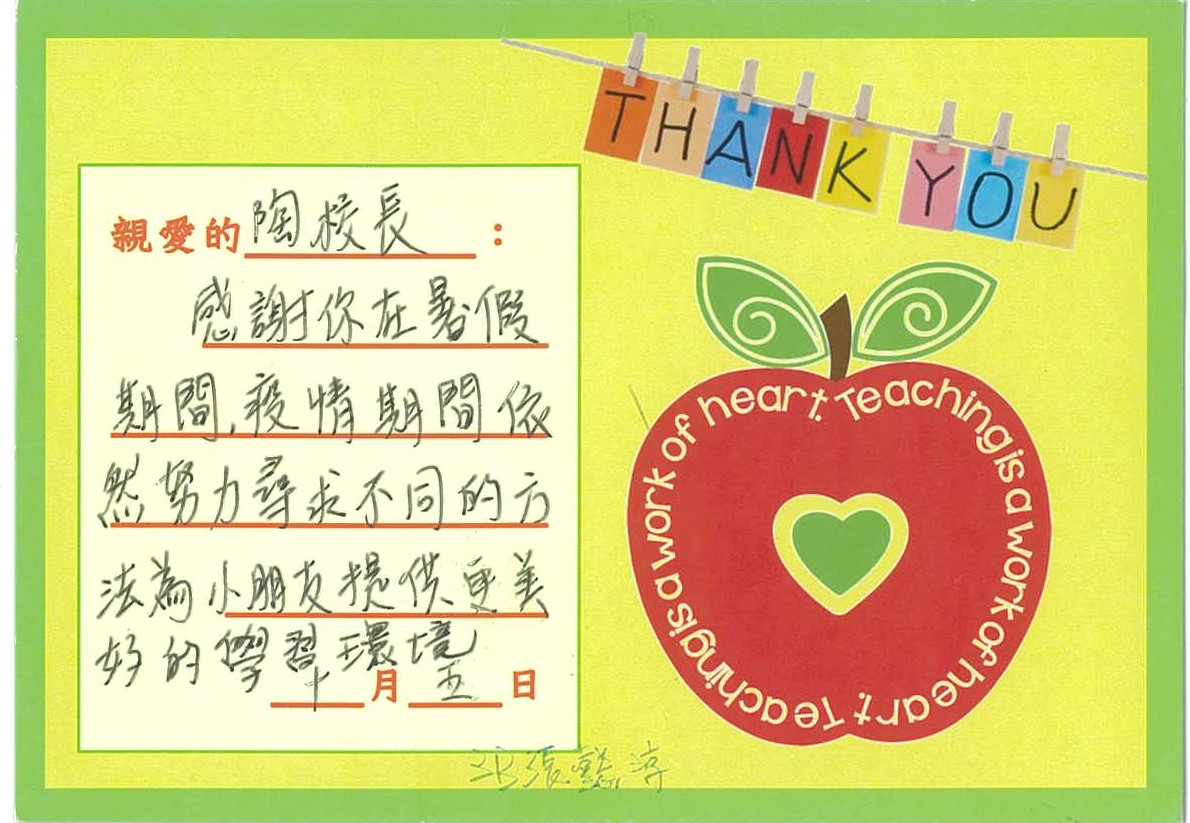 THANK YOU
親愛的陶校長：
感謝你在暑假
期間,疫情期間依
然努力尋求不同的方
法為小朋友提供更美
好的學習環境
十月五日
3B張懿淳
Teaching is a work of heart. Teaching is a work of heart. Teaching is a work of heart.